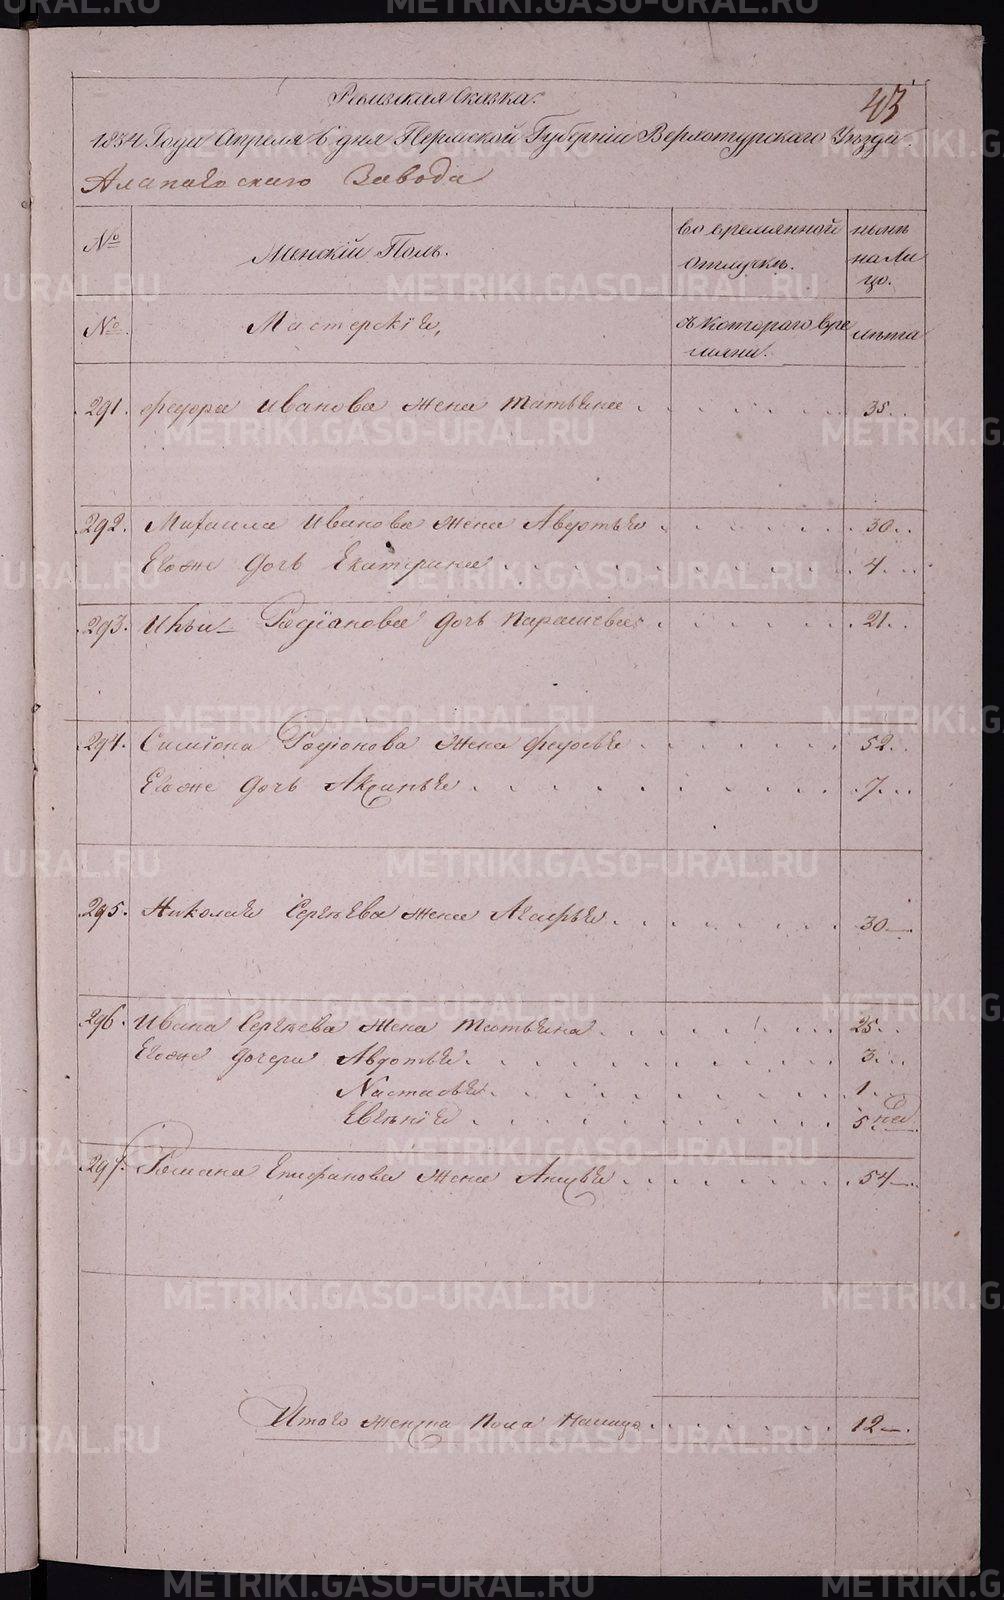 43
Ревизская Сказка.
1834 Года Апреля 6 дня Пермской Губернии Верхотурскаго Уезда
Алапаевскаго Завода
№ Женский Полъ. во времянной отлучкѣ. нынѣ на Лицо.
№ Мастерскiя, съ котораго времяни. лѣта
291. Федора Иванова жена Татьяна 35
292. Михаила Иванова жена Авдотья 30
Егоже дочь Екатерина 4
293. Родiонова дочь Парасковья 21
294. Симiона Родiонова жена Федосья 52
Егоже дочь Акулина 7
295. Николая Сергѣева жена Агафья 30
296. Ивана Сергѣева жена Татьяна 25
Егоже дочери Авдотья 3
Настасья 1
Евгѣнiя 5 не
297. Романа Епифанова жена Анисья 54
Итого женска пола налицо 12
METRIKI.GASO-URAL.RU